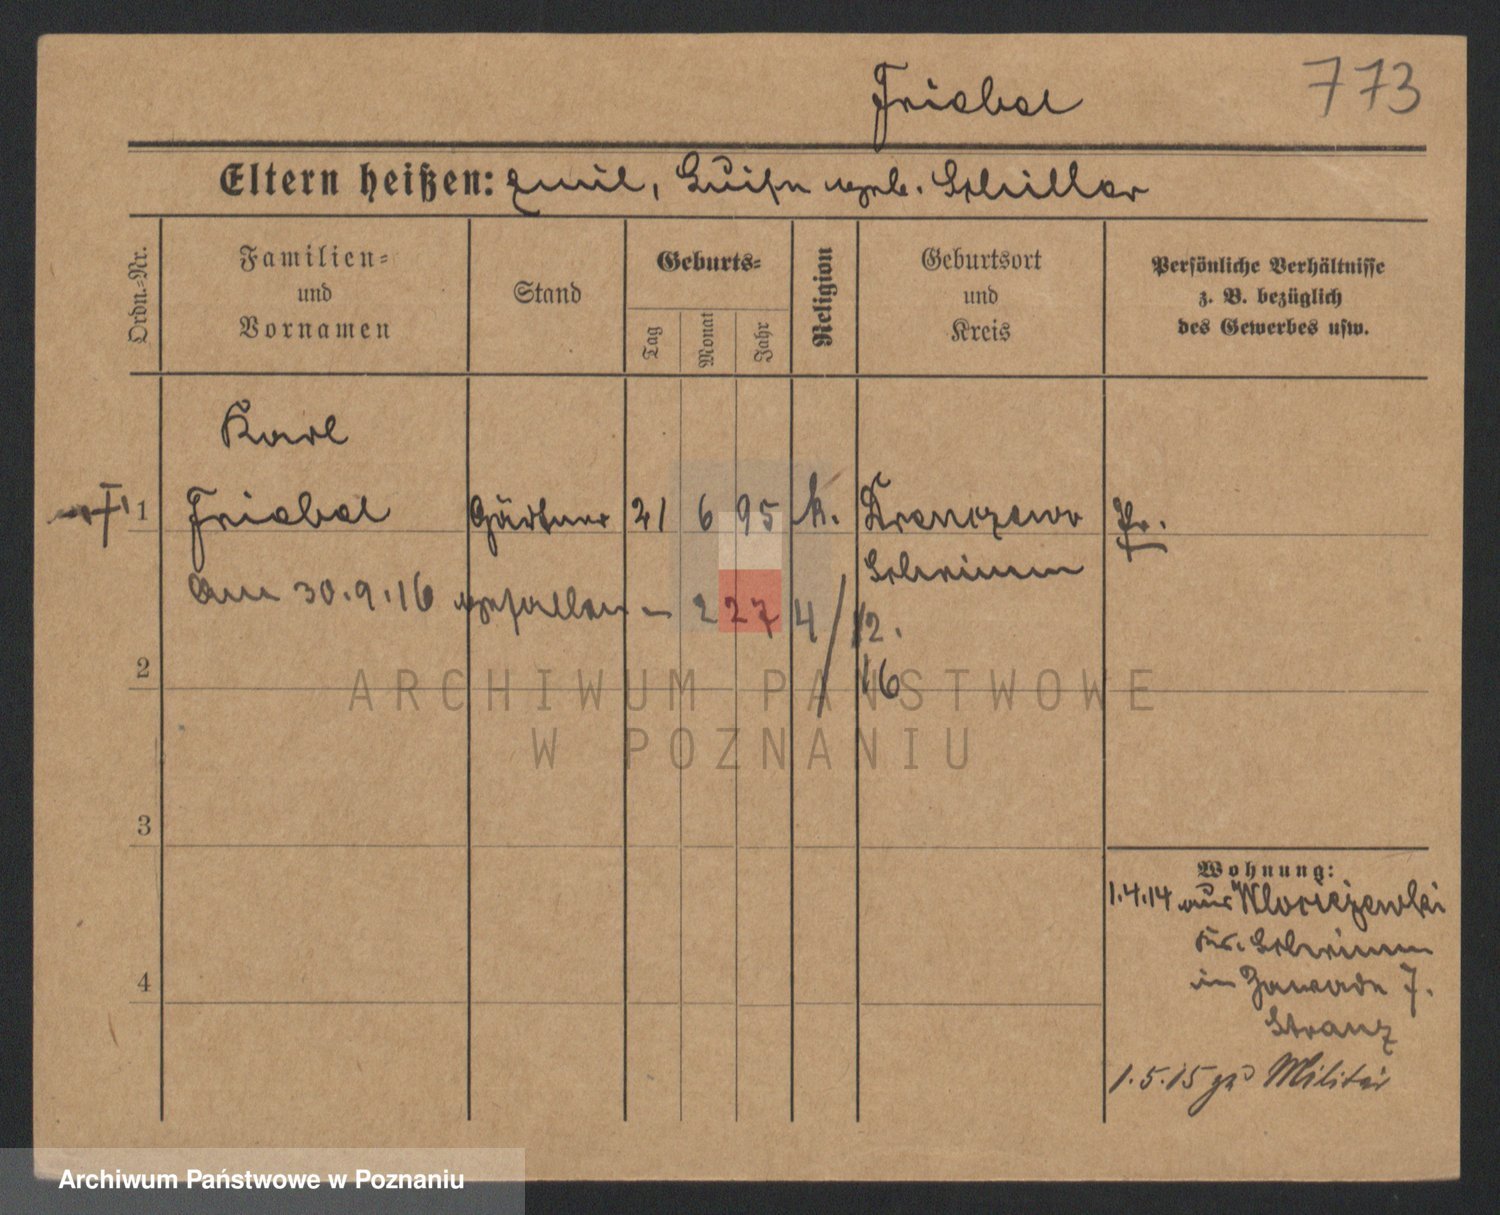 773
Friebel
Eltern heißen: Emil, Luise geb. Schiller
Ordn.=Nr.
Familien=
und
Vornamen
Stand
Geburts=
Tag
Monat
Jahr
Religion
Geburtsort
und
Kreis
Persönliche Verhältnisse
z. B. bezüglich
des Gewerbes usw.
Karl
1 Friebel Gärtner 21 6 95 k. Pr.
Schrimm
Am 30.9.16 gefallen – 2274/12.
16
2
3
4
Wohnung:
1.4.14 aus
Kr. Schrimm
in Zawade 7.
Stranz
1.5.15 zu Militär
ARCHIWUM PAŃSTWOWE
W POZNANIU
Archiwum Państwowe w Poznaniu